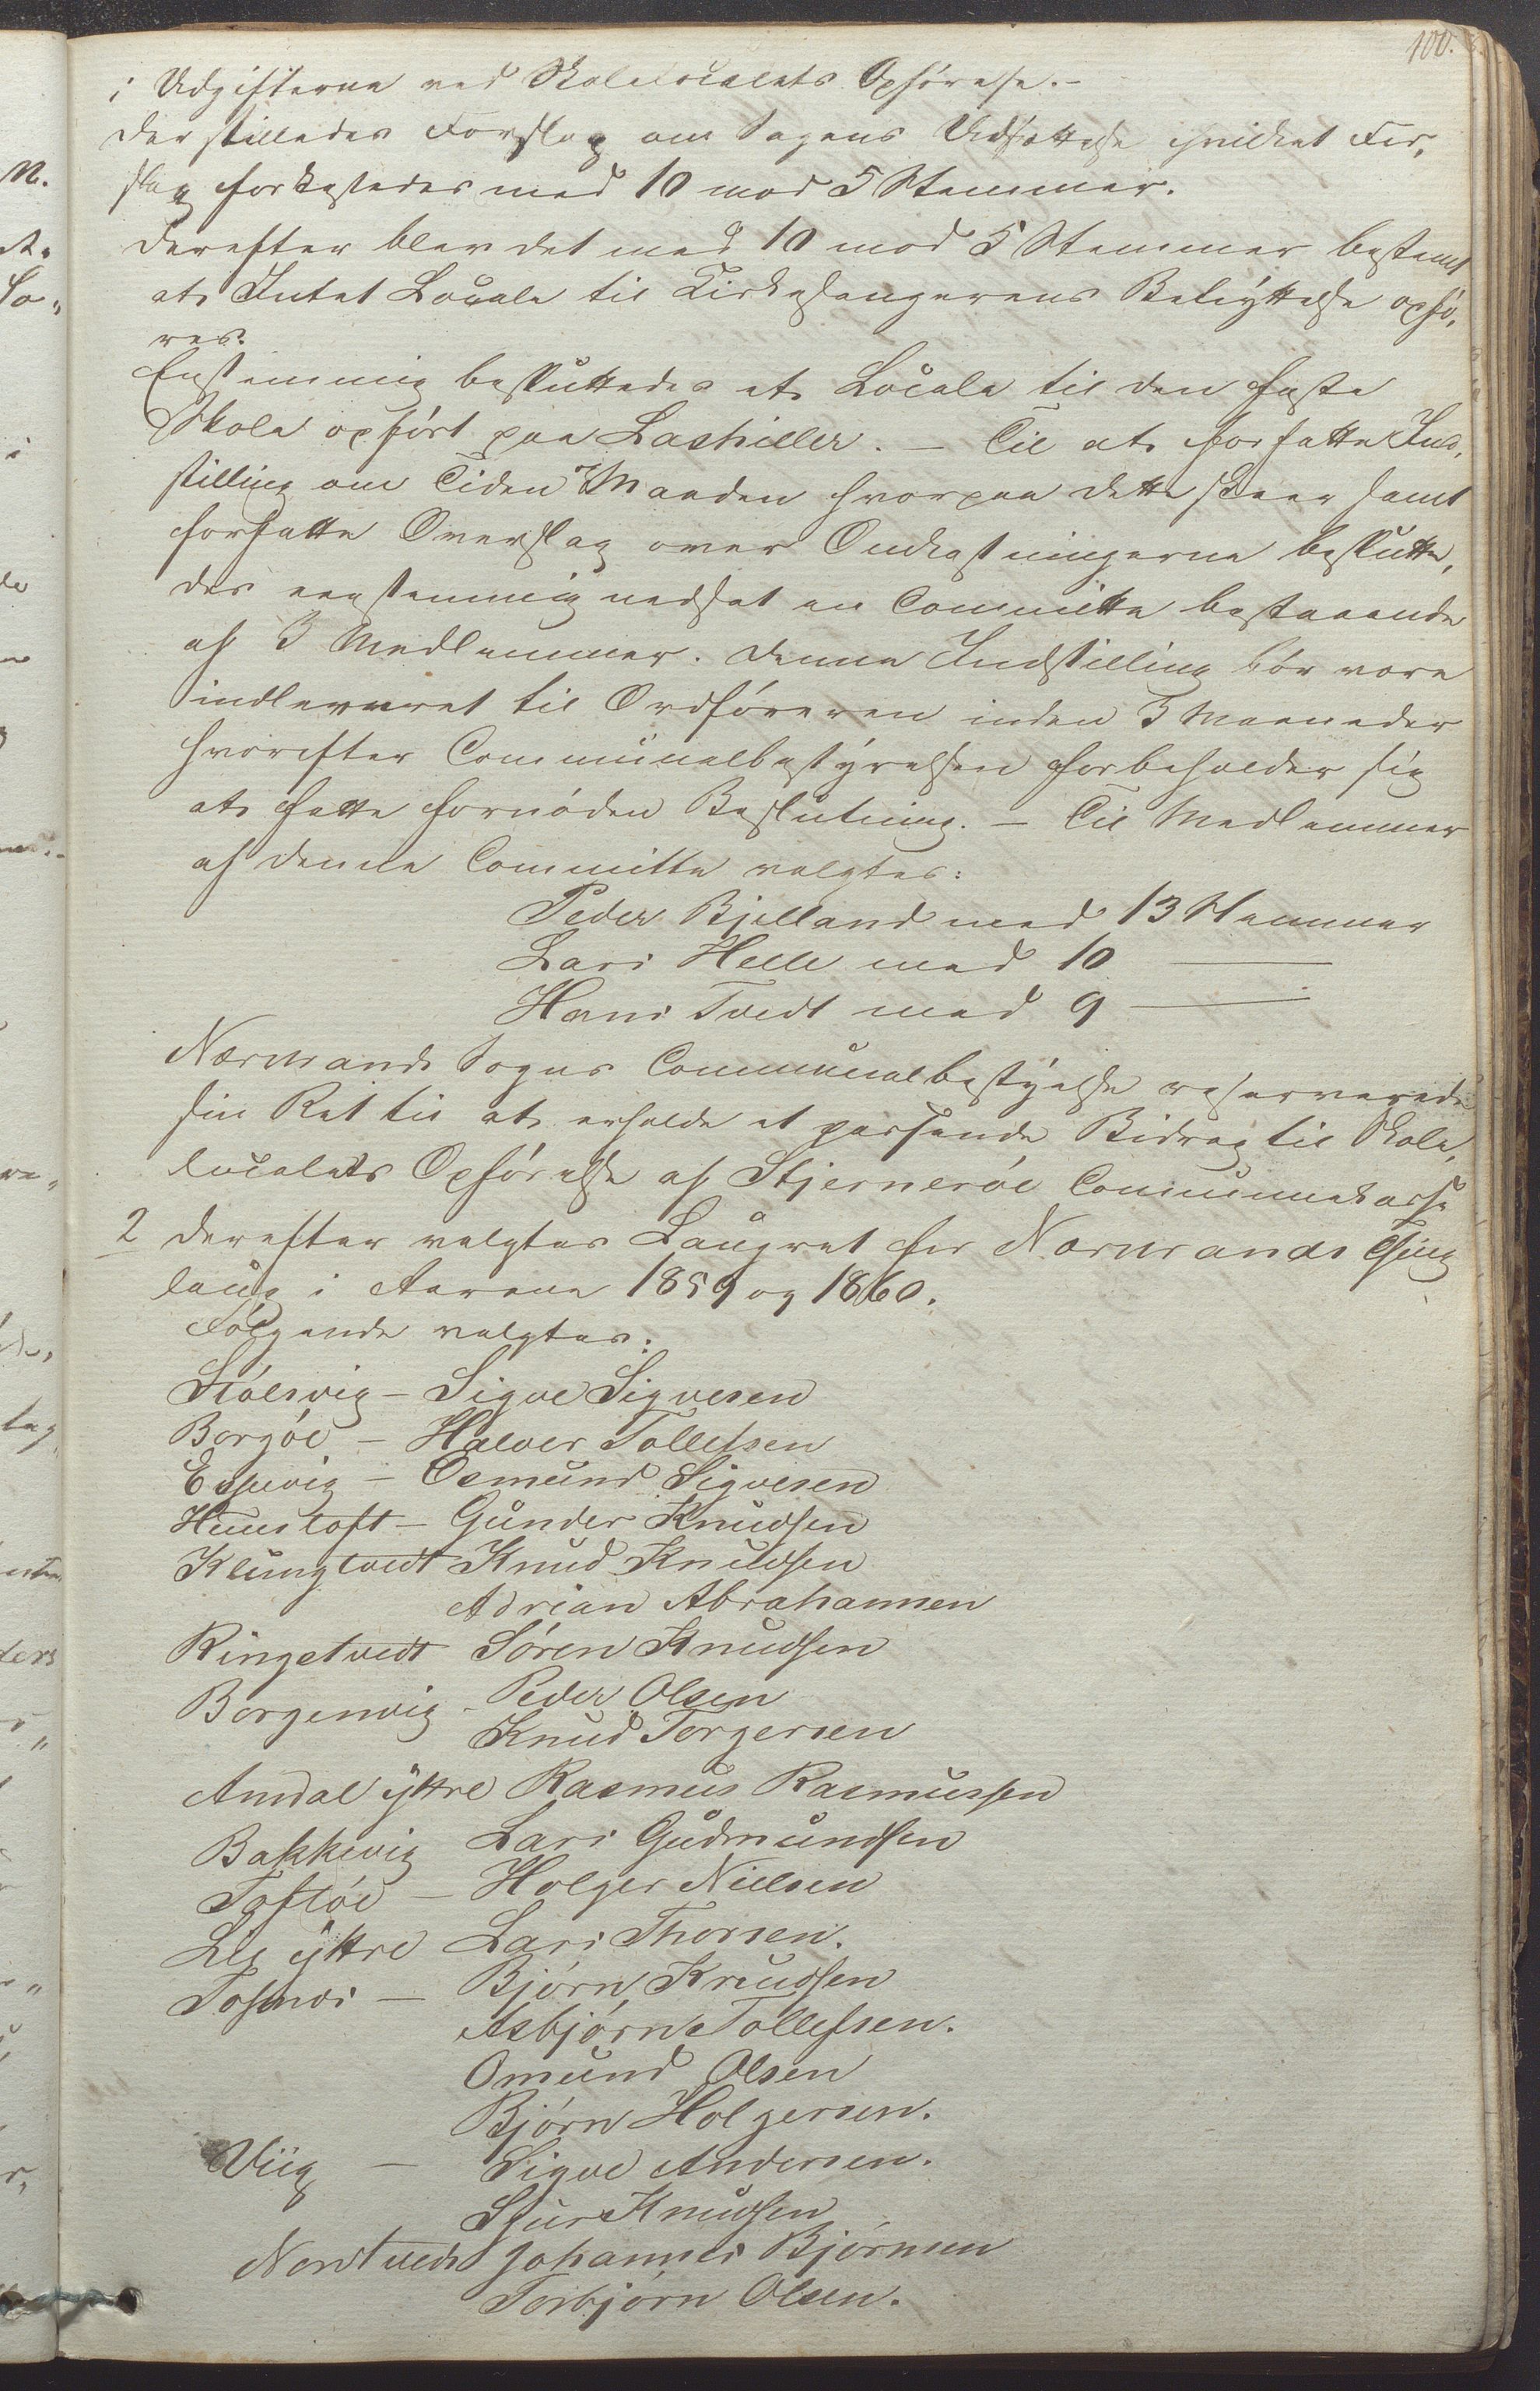 100.
i Udgifterne ved Skolelocalets Opførelse.-
Der stilledes Forslag om Sagens Udsættelse hvilket For,
slag forkastedes med 10 mod 5 Stemmer.
Derefter blev det med 10 mod 5 Stemmer bestemt
at Intet Locale til Kirkesangerens Benyttelse opfø,
res.
Enstemmig besluttedes et Locale til den faste
Skole opført paa Lashiller. - Til at forfatte Ind,
stilling om Tiden og Maaden hvorpaa dette skeer samt
forfatte Overslag over Omkostningerne beslutte,
des eenstemmig nedsat en Committe bestaaende
af 3 Medlemmer. Denne Indstilling bør være
indleveret til Ordføreren inden 3 Maaneder
hvorefter Communalbestyrelsen forbeholder sig
at fatte fornøden Beslutning. - Til Medlemmer
af denne Committe valgtes:
Peder Bjelland med 13 Stemmer
Lars Helle med 10 —
Hans Tvedt med 9 —
Nærstrands Sogns Communalbestyrelse reserverede
sin Ret til at erholde et passende Bidrag til Skole,
localets Opførelse af Stjernerøe Communekasse
2 Derefter valgtes Laugret for Nærstrands Thing
laug i Aarene 1859 og 1860.
Følgende valgtes:
Stølsvig - Sigve Sigvesen
Borgøe - Halvor Tollefsen
Espevig - Osmund Sigvesen
Huustoft - Gunder Knudsen
Klungtvedt Knud Knudsen
Adrian Abrahamsen
Ringetvedt Søren Knudsen
Borgenvig - Peder Olsen
Knud Torgersen
Amdal yttre Rasmus Rasmussen
Bakkevig Lars Gudmundsen
Toftøe - Holger Nielsen
Lie yttre Lars Thorsen.
- Bjørn Knudsen
Asbjørn Tollefsen.
Omund Olsen
Bjørn Holgersen.
Viig - Sigve Andersen.
Sjur Knudsen
Nordtvedt Johannes Bjørnsen
Torbjørn Olsen.